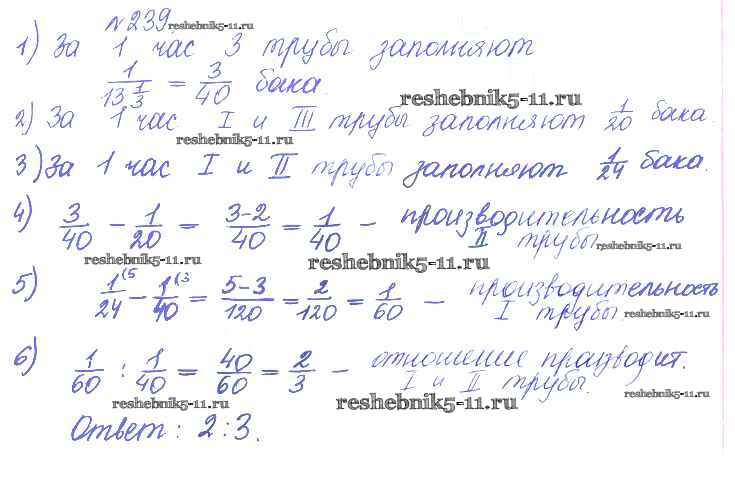 №239. reshebnik5-11.ru
1) За 1 час 3 трубы заполняют
1/13 1/3 = 3/40 бака
reshebnik5-11.ru
2) За 1 час I и III трубы заполняют 1/20 бака.
reshebnik5-11.ru
3) За 1 час I и II трубы заполняют 1/24 бака.
4) 3/40 - 1/20 = 3-2/40 = 1/40 – производительность
II трубы reshebnik5-11.ru
reshebnik5-11.ru reshebnik5-11.ru
5) 1(5/24 - 1(3/40 = 5-3/120 = 2/120 = 1/60 – производительность
I трубы. reshebnik5-11.ru
6) 1/60 : 1/40 = 40/60 = 2/3 – отношение производит.
I и II трубы.
reshebnik5-11.ru reshebnik5-11.ru reshebnik5-11.ru
Ответ: 2:3.